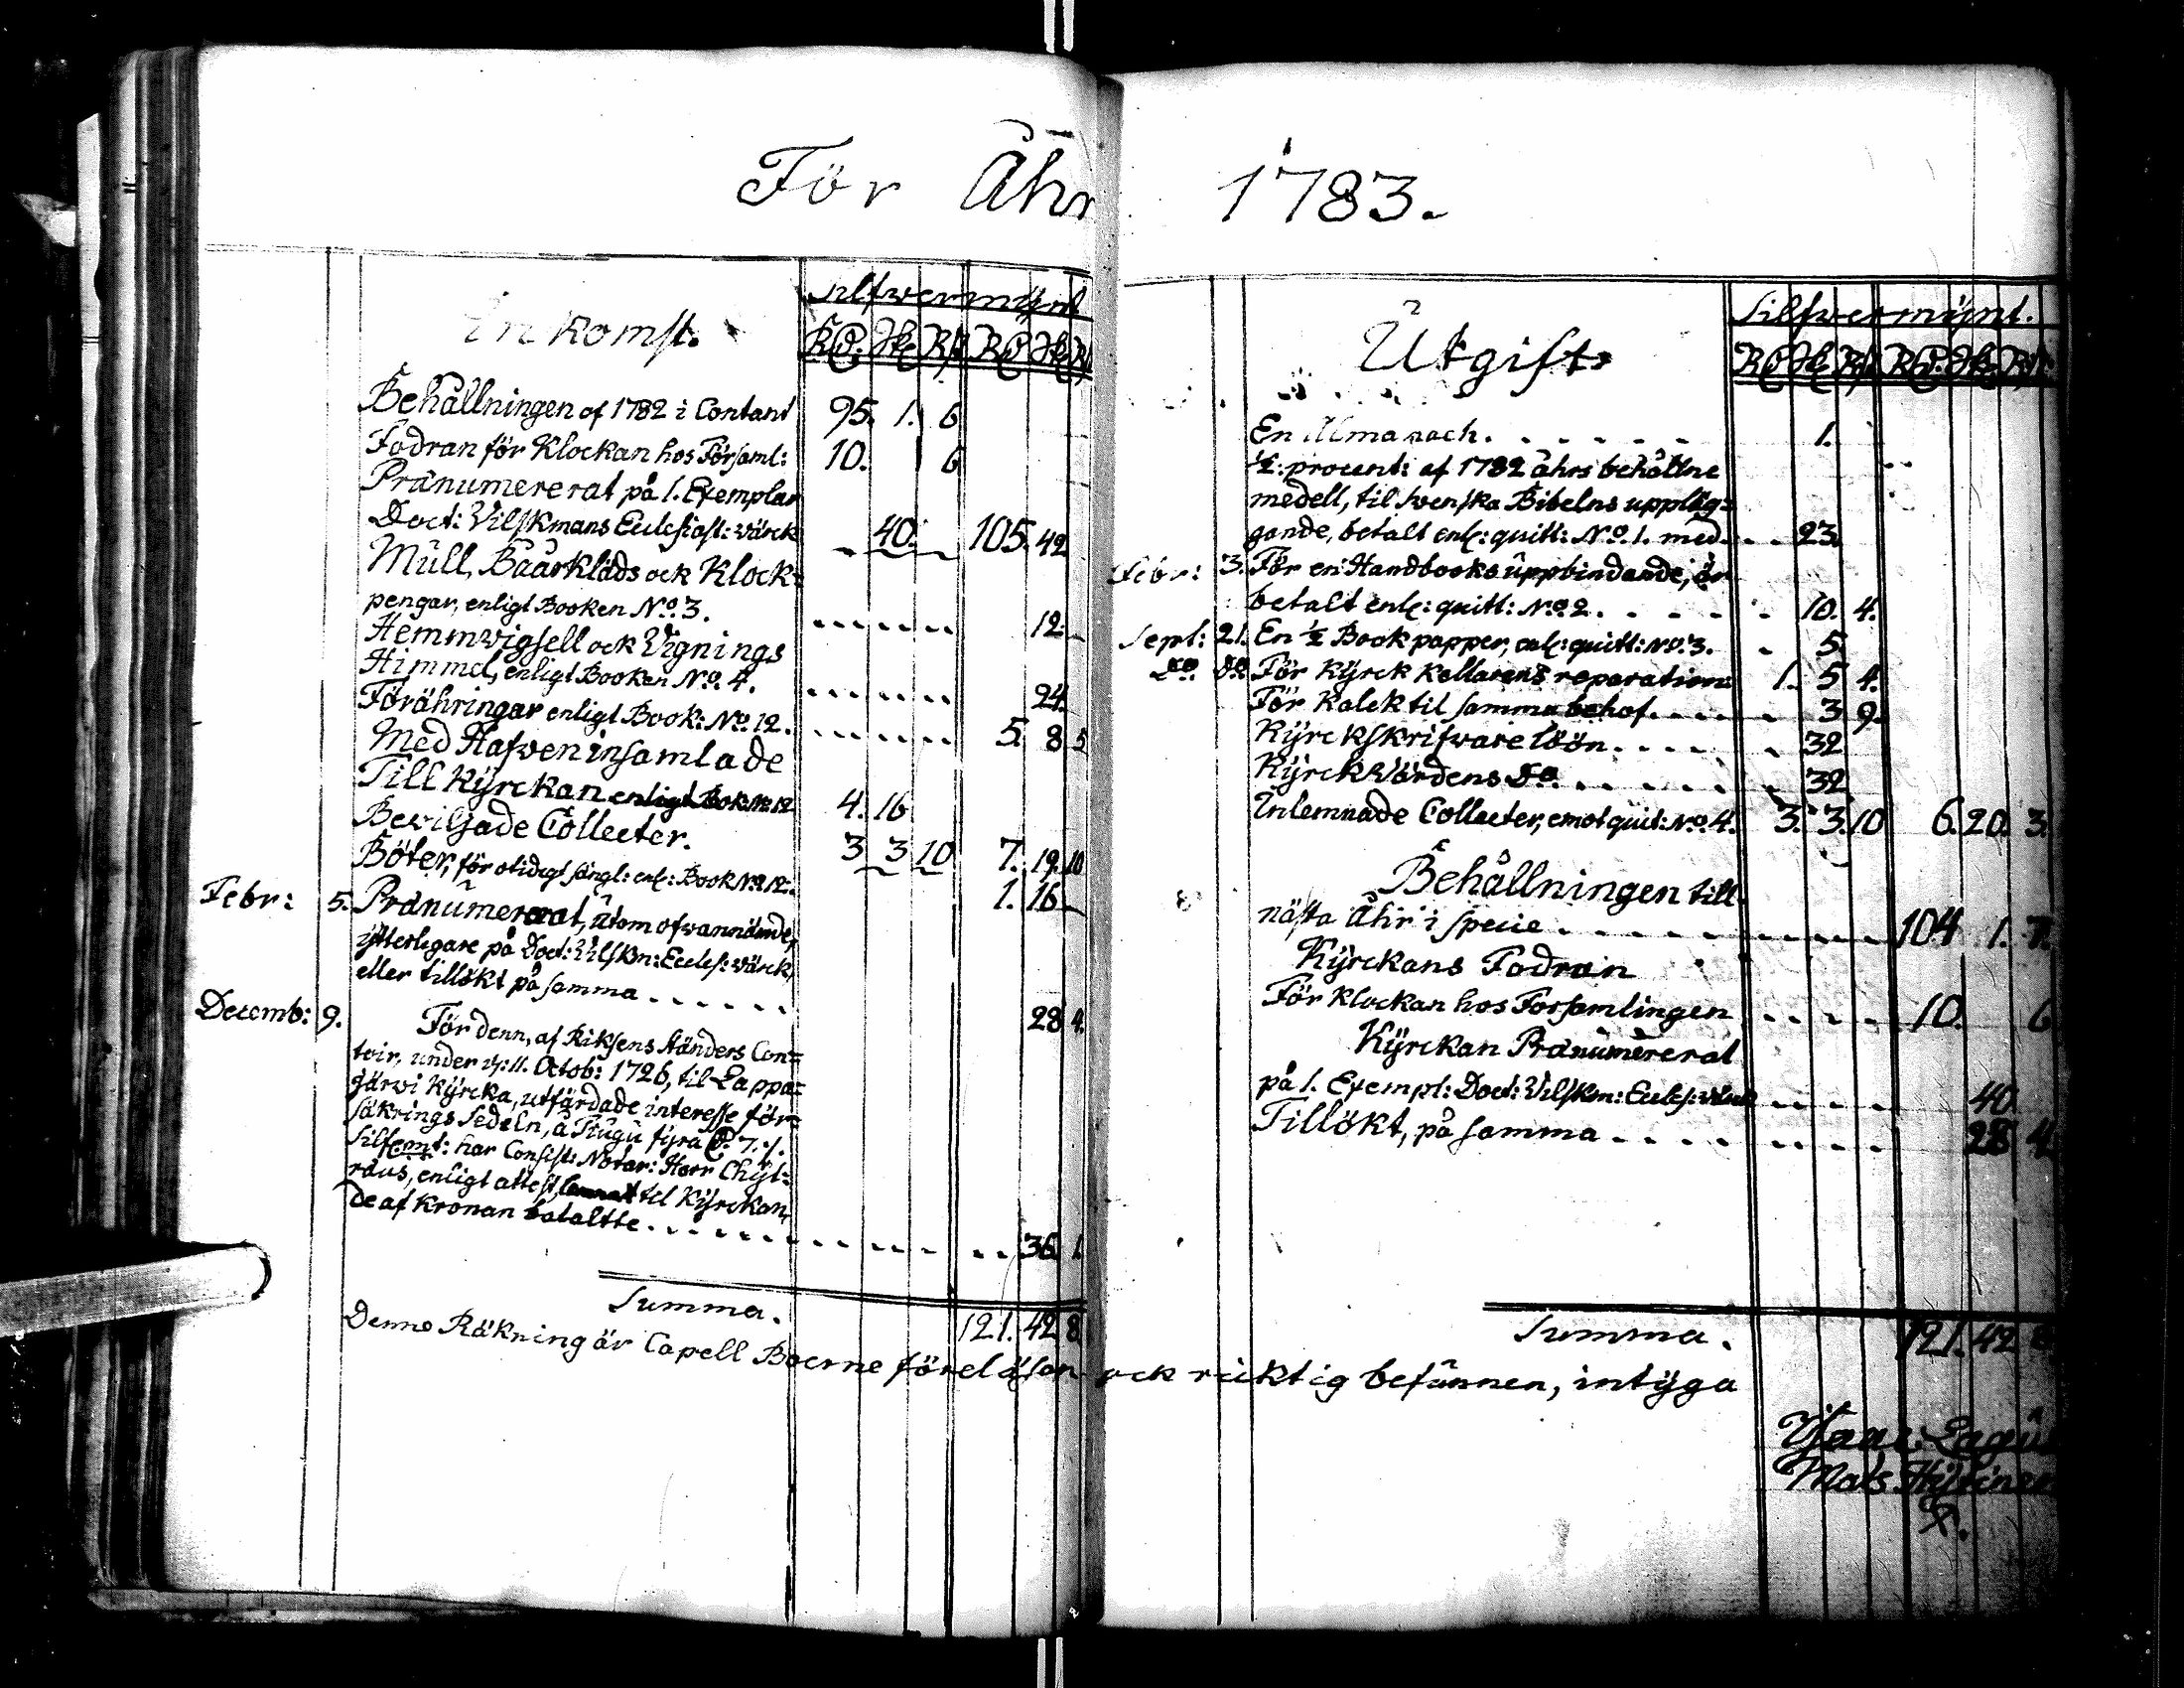 För Åhr 1783.
Inkomst. Silfwermÿnt
RD. Sk. Rst. RD. Sk. Rst.
Behållningen af 1782 i Contant 95. 1. 6
Fodran för Klockan hos Församl: 10. 6
Pränumererat på 1. Exemplar
Doct: Vilskmans Ecclesiast: värck 40. 105. 42
Mull, Båårkläds ock Klock-
pengar, enligt Booken No. 3. 12.
Hemmvigsell ock Vignings
Himmel, enligt Booken No. 4. 24.
Förähringar enligt Book: No. 12. 5. 8 5
Med Hafwen insamlade
Till Kÿrckan enligt Bok: No. 12 4. 16
Beviljade Collecter. 3 3 10 7. 19. 10
Böter, för otidigt sängl: enl: Book No. 12. 1. 16
Febr: 5. Pränumererat, utom ofvannämde,
ÿtterligare på Doct: Vilskm: Eccles: värck,
eller tillökt på samma 28 4.
Decemb: 9. För denn, af Riksens Ständers Con-
toir, under d: 11. Octob: 1726, til Lappa-
järwi Kÿrcka, utfärdade interesse för-
säkrings Sedeln, å Tiugu fÿra D. 7. /.
Silfwmt: har Consist: Notar: Herr Chÿt-
räus, enligt attest, til Kÿrckan,
de af Kronan bataltte 36. 1.
Summa. 121. 42 8
Denne Räkning är Capell Boerne föreläsen ock ricktig befunnen, intÿga
Utgift. Silfwermÿnt.
RD Sk Rst RD. Sk. Rst
En Almanach. 1.
½ procent: af 1782 åhrs behållne
medell, til Svenska Bibelns uppläg-
gande, betalt enl: quitt: No. 1. med 23.
Febr: 3. För en Handbooks uppbindande, är
betalt enl: quitt: No. 2. 10. 4.
Sept: 21. En ½ Book papper, enl: quitt: No. 3. 5
Do Do För Kÿrck Kellarens reparation 1. 5 4.
För Kalck til samma behof 3 9.
Kÿrckskrifvare löön 32
Kÿrck Värdens Do. 32
Inlemnade Collecter, emot quit: No. 4. 3. 3. 10 6. 20. 3.
Behållningen till
nästa Åhr i specie 104 1. 7.
Kÿrckans Fodran
För Klockan hos Forsamlingen 10. 6
Kÿrckan Pränumererat
på 1. Exempl: Doct: Vilskm: Eccles: 40
Tillökt, på samma 28 4
Summa. 121. 42 8
Isaac
Mats